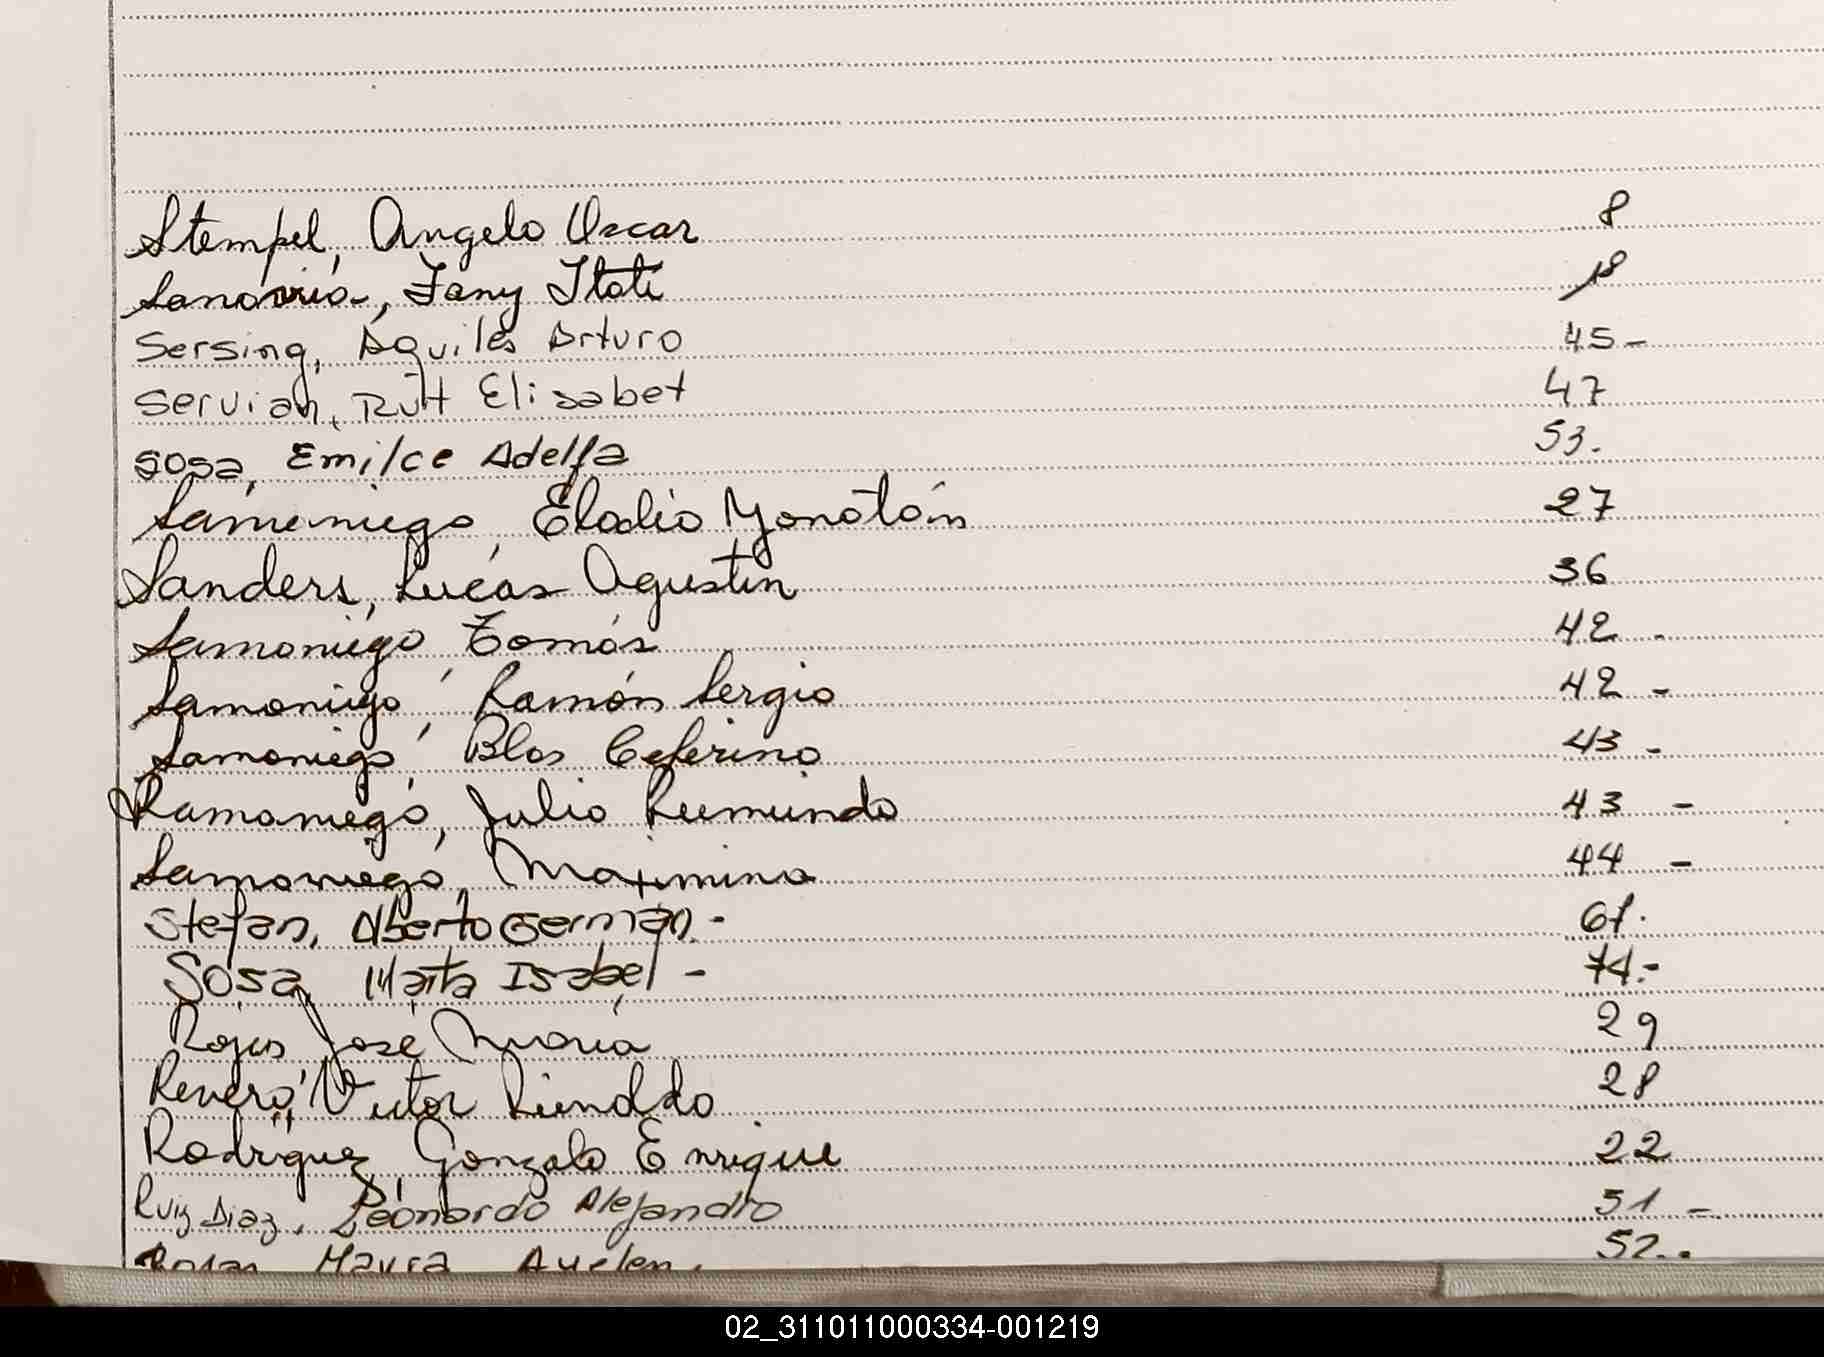 Stempel, Angelo Oscar 8
Sanavria, Fany Itatí 18
Sersing, Aquiles Arturo 45-
Servian, Rut Elizabet 47
Sosa, Emilce Adelfa 53.
Samaniego, Eladio Jonatán 27
Sanders, Lucas Agustin 36
Samaniego, Tomás 42 -
Samaniego, Ramón Sergio 42 -
Samaniego, Blas Ceferino 43 -
Samaniego, Julio Reimundo 43 -
Samaniego, Maximina 44 -
Stefan, Alberto Germán.- 61.
Sosa, Marta Isabel - 74.-
Rojas, José María 29
Victor 28
Rodríguez, Gonzalo Enrique 22
Ruiz Diaz, Leonardo Alejandro 51 -
Mayra Ayelen. 52.
02_311011000334-001219